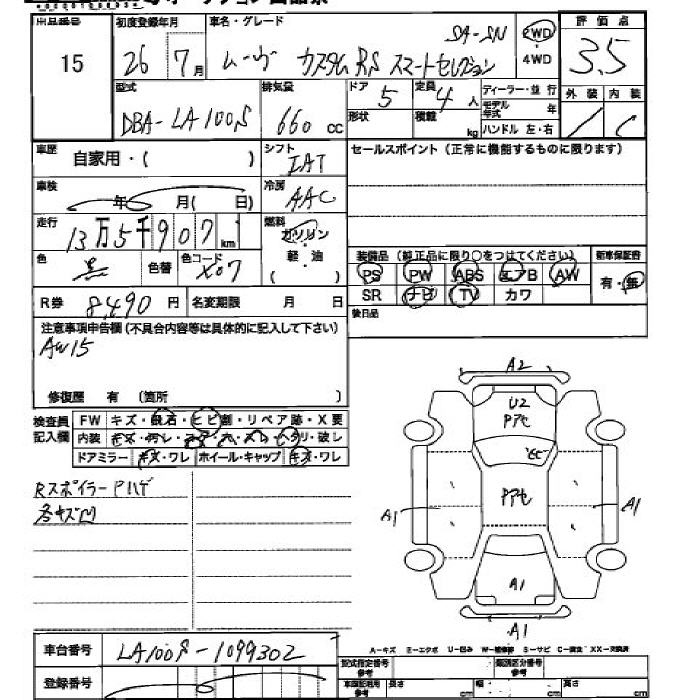 出品番号 初度登録年月 車名・グレード 評価点
15 26 7月 ムーヴ カスタムRS スマートセレクション 5A-5N 2WD・4WD 3.5
型式 排気量 ドア 5 定員 4人 ディーラー・並行 外装 内装
DBA-LA100S 660cc 形状 積載 kg モデル年式 年 C
ハンドル 左・右
車歴 自家用・( ) シフト IAT セールスポイント(正常に機能するものに限ります)
車検 年 月( 日) 冷房 AAC
走行 13万5千907km 燃料 ガソリン・軽・油 ( )
装備品(純正品に限り○をつけてください) 新車保証書
色 黒 色替 色コード X07 PS PW ABS エアB AW 有・無
SR ナビ TV カワ
R券 8,490円 名変期限 月 日 後日品
注意事項申告欄(不具合内容等は具体的に記入して下さい)
AW15
修復歴 有 (箇所 )
検査員記入欄 FW キズ・飛石・ヒビ割・リペア跡・X要
内装 キズ・汚レ・コゲ・穴・スレ・ヘタリ・破レ
ドアミラー キズ・ワレ ホイール・キャップ キズ・ワレ
Rスポイラー Pハゲ
各キズ凹
A2
U2
Pアセ
飛
Pアセ
A1 A1
A1
A1
A-キズ E-エクボ U-凹み W-補修跡 S-サビ C-腐食 XX-交換済
車台番号 LA100S-1099302
登録番号
型式指定番号 類別区分番号
車両証利用参考 長さ cm 幅 cm 高さ cm